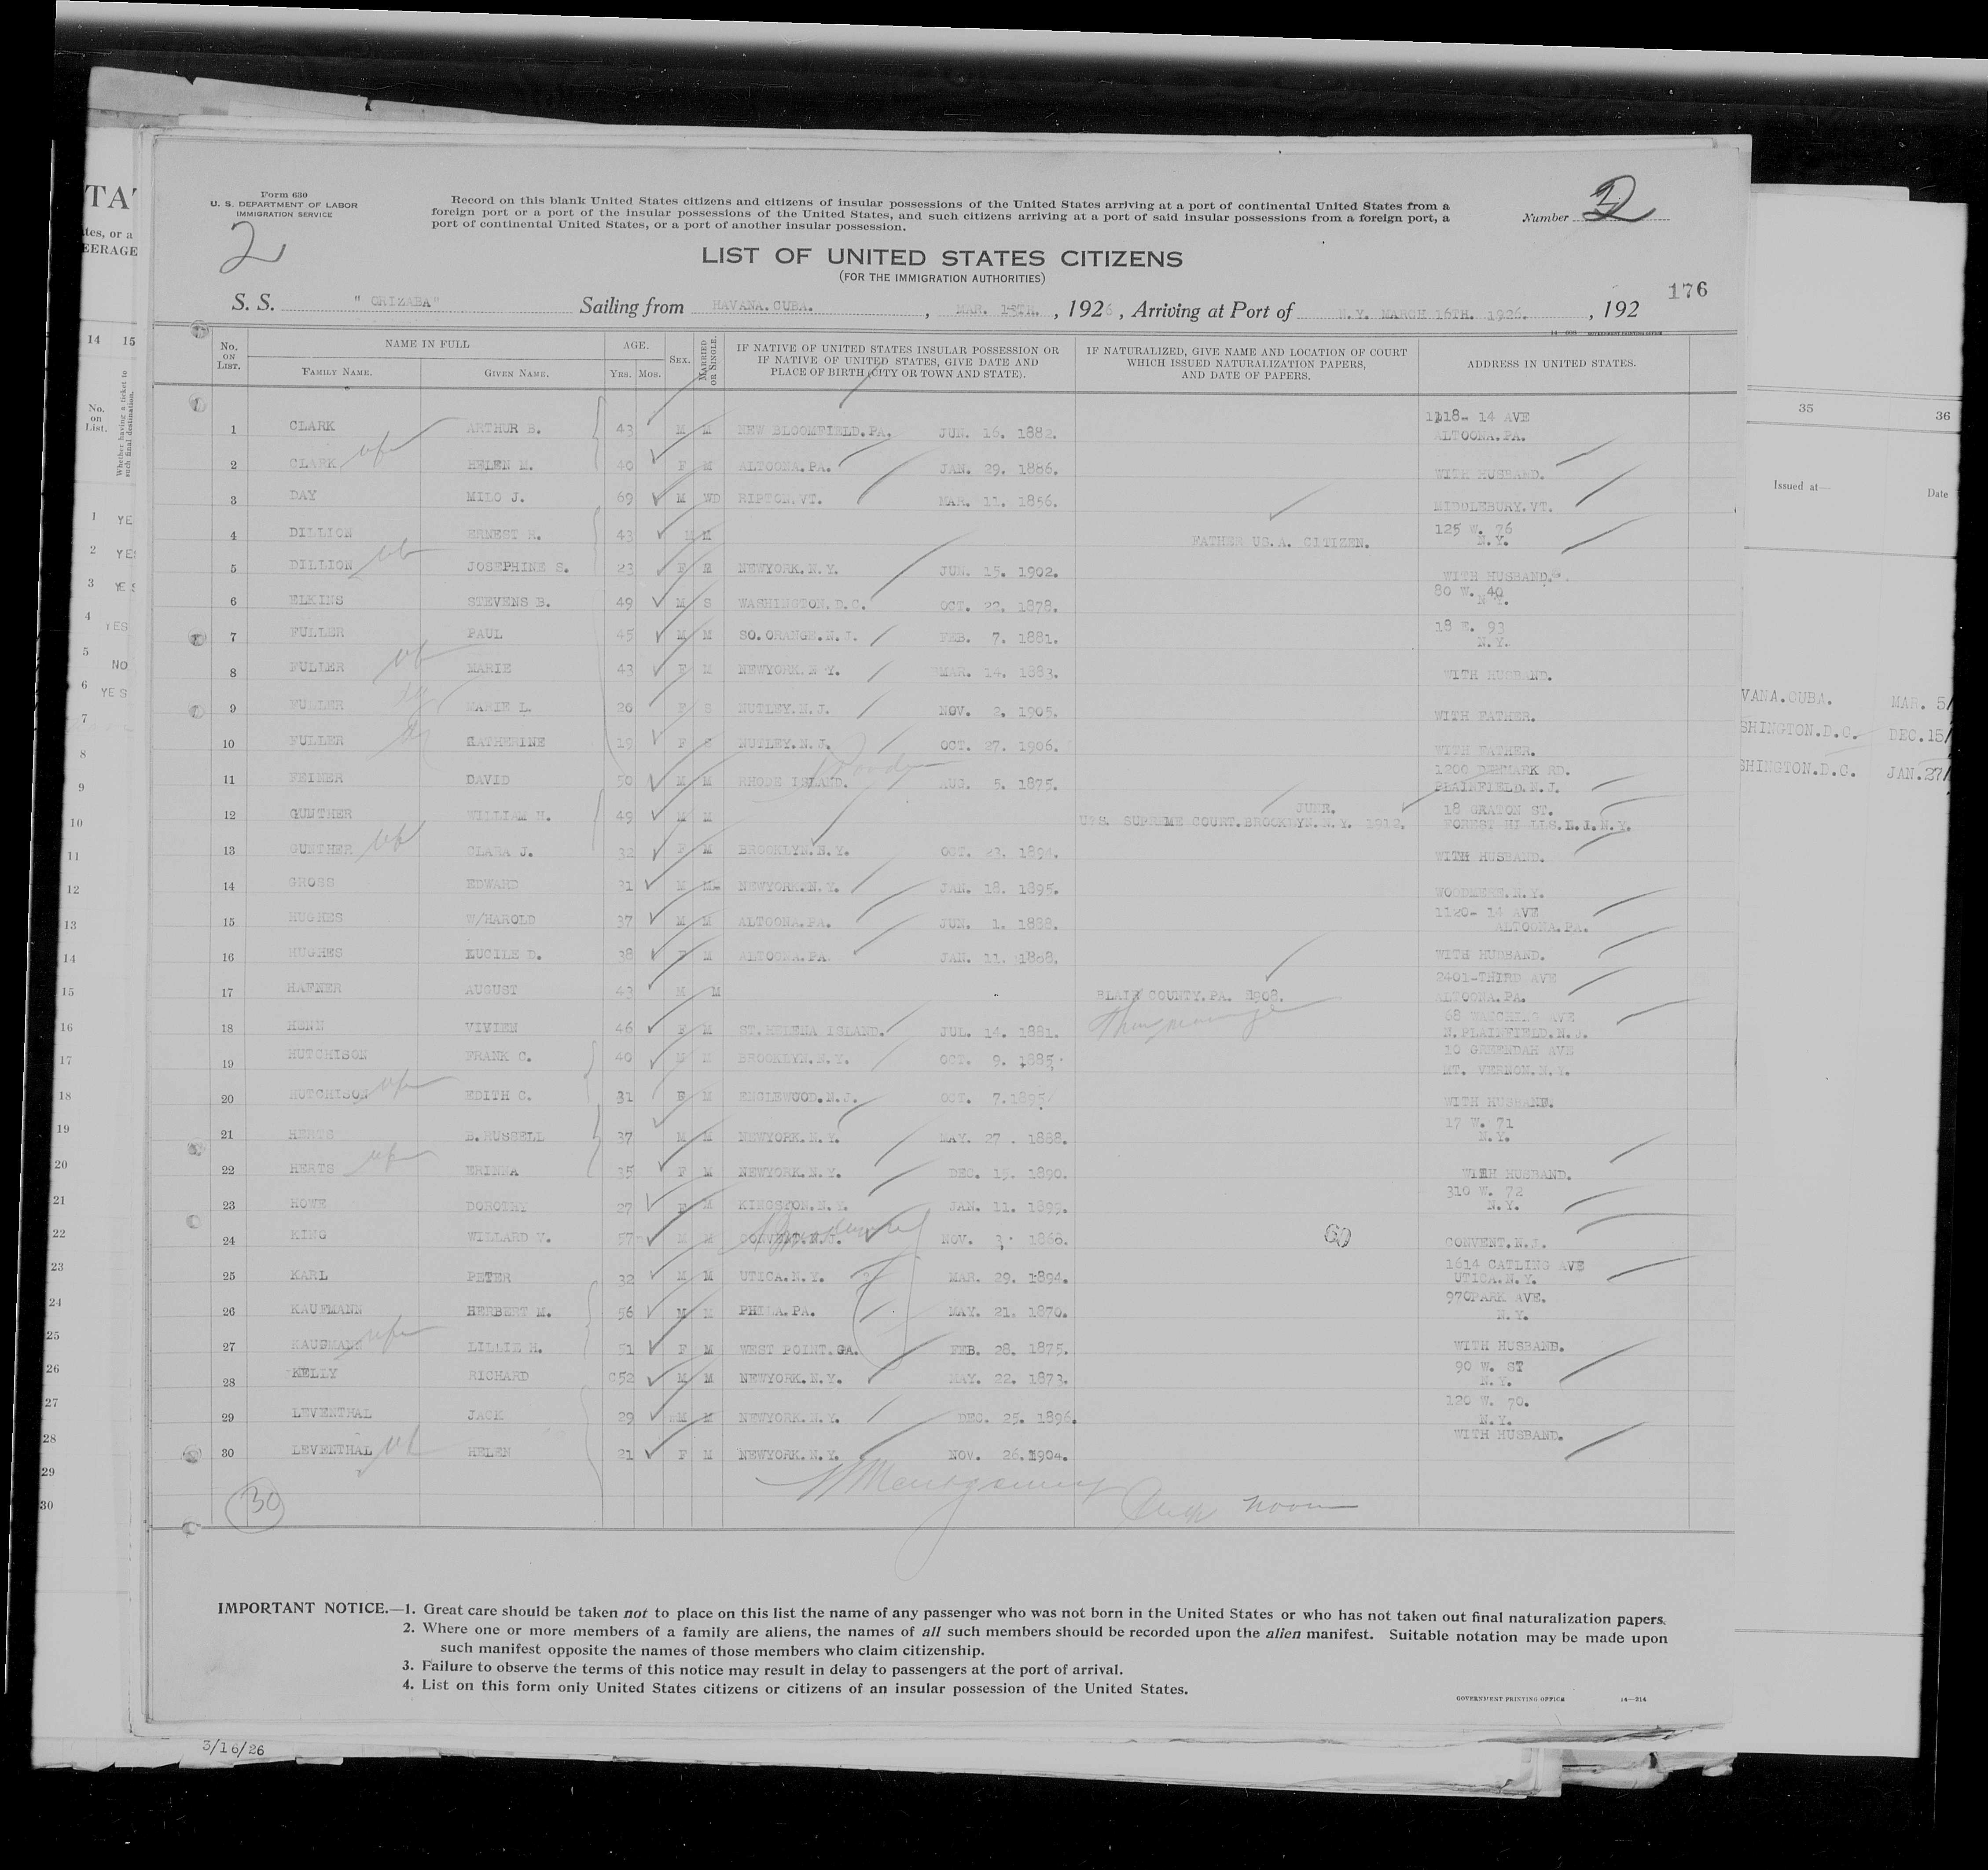 Form 630
U. S. DEPARTMENT OF LABOR
IMMIGRATION SERVICE
2
Record on this blank United States citizens and citizens of insular possessions of the United States arriving at a port of continental United States from a
foreign port or a port of the insular possessions of the United States, and such citizens arriving at a port of said insular possessions from a foreign port, a
port of continental United States, or a port of another insular possession.
Number 2
LIST OF UNITED STATES CITIZENS
(FOR THE IMMIGRATION AUTHORITIES)
176
S. S. "ORIZABA" Sailing from HAVANA.CUBA. , MAR. 13TH. , 1926 , Arriving at Port of N.Y. MARCH 16TH. 1926. , 192
No. ON LIST. NAME IN FULL FAMILY NAME. GIVEN NAME. AGE. YRS. MOS. SEX. MARRIED OR SINGLE. IF NATIVE OF UNITED STATES INSULAR POSSESSION OR IF NATIVE OF UNITED STATES, GIVE DATE AND PLACE OF BIRTH (CITY OR TOWN AND STATE). IF NATURALIZED, GIVE NAME AND LOCATION OF COURT WHICH ISSUED NATURALIZATION PAPERS, AND DATE OF PAPERS. ADDRESS IN UNITED STATES.
1 CLARK ARTHUR B. 43 M M NEW BLOOMFIELD.PA. JUN. 16. 1882. 1118- 14 AVE ALTOONA.PA.
2 CLARK HELEN M. 40 F M ALTOONA.PA. JAN. 29. 1886. WITH HUSBAND.
3 DAY MILO J. 69 M WD RIPTON.VT. MAR. 11. 1856. MIDDLEBURY.VT.
4 DILLION ERNEST H. 43 M M FATHER US.A. CITIZEN. 125 W. 76 N.Y.
5 DILLION JOSEPHINE S. 23 F M NEWYORK.N.Y. JUN. 15. 1902. WITH HUSBAND.
6 ELKINS STEVENS B. 49 M S WASHINGTON.D.C. OCT. 22. 1878. 80 W. 40 N.Y.
7 FULLER PAUL 45 M M SO.ORANGE.N.J. FEB. 7. 1881. 18 E. 93 N.Y.
8 FULLER MARIE 43 F M NEWYORK.N.Y. MAR. 14. 1883. WITH HUSBAND.
9 FULLER MARIE L. 20 F S NUTLEY.N.J. NOV. 2. 1905. WITH FATHER.
10 FULLER KATHERINE 19 F S NUTLEY.N.J. OCT. 27. 1906. WITH FATHER.
11 FEINER DAVID 50 M M RHODE ISLAND. AUG. 5. 1875. 1200 DENMARK RD. PLAINFIELD.N.J.
12 GUNTHER WILLIAM H. 49 M M JUNR. U.S. SUPREME COURT.BROOKLYN.N.Y. 1912. 18 GRATON ST. FOREST HILLS.L.I.N.Y.
13 GUNTHER CLARA J. 32 F M BROOKLYN.N.Y. OCT. 23. 1894. WITH HUSBAND.
14 GROSS EDWARD 31 M M NEWYORK.N.Y. JAN. 18. 1895. WOODMERE.N.Y.
15 HUGHES W/HAROLD 37 M M ALTOONA.PA. JUN. 1. 1888. 1120- 14 AVE ALTOONA.PA.
16 HUGHES LUCILE D. 38 F M ALTOONA.PA. JAN. 11. 1868. WITH HUDBAND.
17 HAFNER AUGUST 43 M M BLAIR COUNTY.PA. 1908. 2401-THIRD AVE ALTOONA.PA.
18 HENN VIVIEN 46 F M ST.HELENA ISLAND. JUL. 14. 1881. 68 WATCHENG AVE N.PLAINFIELD.N.J.
19 HUTCHISON FRANK C. 40 M M BROOKLYN.N.Y. OCT. 9. 1885. 10 GREENDAH AVE MT. VERNON.N.Y.
20 HUTCHISON EDITH C. 31 F M ENGLEWOOD.N.J. OCT. 7.1895 WITH HUSBAND.
21 HERTS B.RUSSELL 37 M M NEWYORK.N.Y. MAY. 27 . 1888. 17 W. 71 N.Y.
22 HERTS ERINNA 35 F M NEWYORK.N.Y. DEC. 15. 1890. WITH HUSBAND.
23 HOWE DOROTHY 27 F M KINGSTON.N.Y. JAN. 11. 1899. 310 W. 72 N.Y.
24 KING WILLARD V. 57 M M CONVENT.N.J. NOV. 3. 1868. CONVENT.N.J.
25 KARL PETER 32 M M UTICA.N.Y. MAR. 29. 1894. 1614 CATLING AVE UTICA.N.Y.
26 KAUFMANN HERBERT M. 56 M M PHILA.PA. MAY. 21. 1870. 970PARK AVE. N.Y.
27 KAUFMANN LILLIE H. 51 F M WEST POINT.GA. FEB. 28. 1875. WITH HUSBAND.
28 KELLY RICHARD 52 M M NEWYORK.N.Y. MAY. 22. 1873. 90 W. ST N.Y.
29 LEVENTHAL JACK 29 M M NEWYORK.N.Y. DEC. 25. 1896. 120 W. 70. N.Y.
30 LEVENTHAL HELEN 21 F M NEWYORK.N.Y. NOV. 26.1904. WITH HUSBAND.
30
Montgomery
noon
IMPORTANT NOTICE.—1. Great care should be taken not to place on this list the name of any passenger who was not born in the United States or who has not taken out final naturalization papers.
2. Where one or more members of a family are aliens, the names of all such members should be recorded upon the alien manifest. Suitable notation may be made upon
such manifest opposite the names of those members who claim citizenship.
3. Failure to observe the terms of this notice may result in delay to passengers at the port of arrival.
4. List on this form only United States citizens or citizens of an insular possession of the United States.
GOVERNMENT PRINTING OFFICE 14—214
3/16/26
35 36
Issued at— Date
VANA.CUBA. MAR. 5/
SHINGTON.D.C. DEC.15/
SHINGTON.D.C. JAN.27/